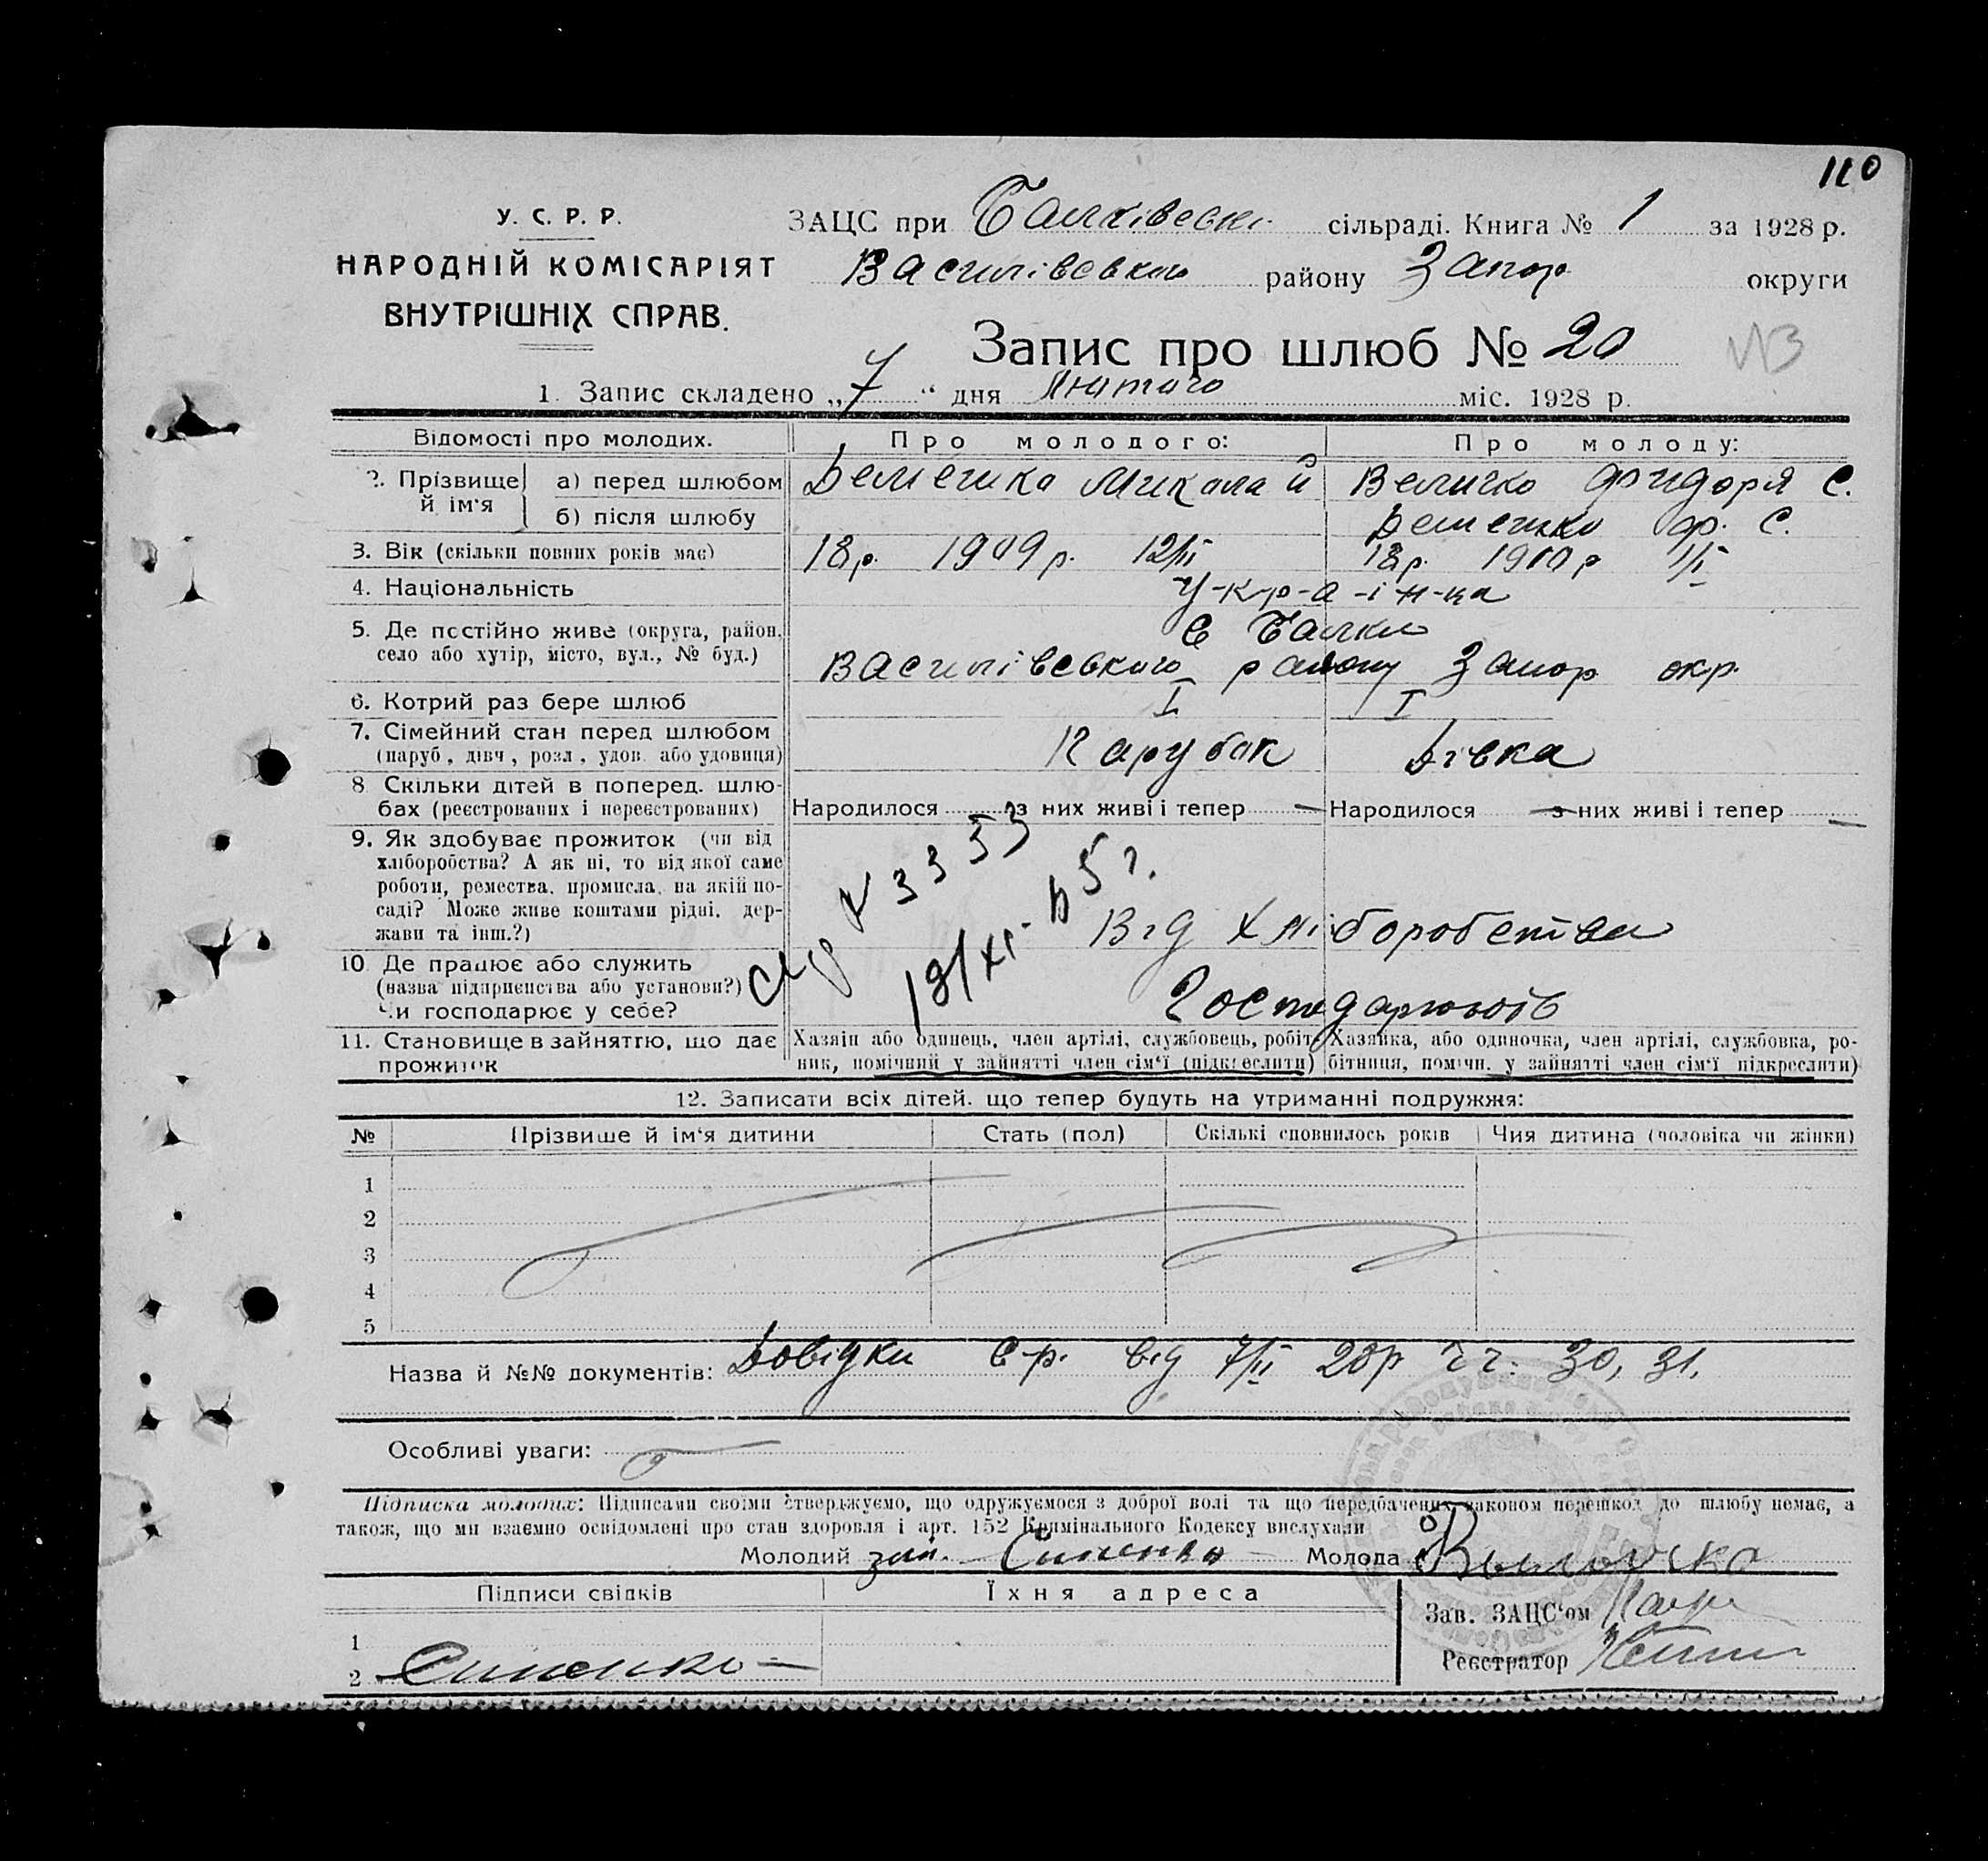 110
У. С. Р. Р.
НАРОДНІЙ КОМІСАРІЯТ
ВНУТРІШНІХ СПРАВ.
ЗАЦС при Балківські сільраді. Книга № 1 за 1928 р.
Василівського району Запор округи
Запис про шлюб № 20
1. Запис складено „7“ дня Лютого міс. 1928 р.
Відомості про молодих. Про молодого: Про молоду:
2. Прізвище й ім'я а) перед шлюбом Микалай Величко Фидоря С.
б) після шлюбу Ф. С.
3. Вік (скільки повних років має) 18 р. 1909 р. 12/II 18 р. 1910 р 1/I
4. Національність У-к-р-а-ї-н-ци
5. Де постійно живе (округа, район, С Балки
село або хутір, місто, вул., № буд.) Василівського району Запор окр.
6. Котрий раз бере шлюб I I
7. Сімейний стан перед шлюбом
(паруб, дівч, розл, удов. або удовиця) Парубок Дівка
8 Скільки дітей в поперед. шлю-
бах (реєстрованих і нереєстрованих) Народилося з них живі і тепер — Народилося — з них живі і тепер —
9. Як здобуває прожиток (чи від
хліборобства? А як ні, то від якої саме
роботи, ремества, промисла, на якій по-
саді? Може живе коштами рідні, дер-
жави та інш.?) Від хліборобства
№ 3353
18/XI-
10 Де працює або служить
(назва підприєнства або установи?)
Чи господарює у себе? Господарюють
11. Становище в зайняттю, що дає прожиток
Хазяїн або одинець, член артілі, службовець, робіт-
ник, помічний у зайнятті член сім'ї (підкреслити)
Хазяйка, або одиночка, член артілі, службовка, ро-
бітниця, помічн. у зайнятті член сім'ї підкреслити)
12. Записати всіх дітей, що тепер будуть на утриманні подружжя:
№ Прізвише й ім'я дитини Стать (пол) Скількі сповнилось років Чия дитина (чоловіка чи жінки)
1
2
3
4
5
Назва й №№ документів: Довідки С-р. від 7/II 28р ч ч. 30, 31.
Особливі уваги:
Підписка молодих: Підписами своїми стверджуємо, що одружуємося з доброї волі та що передбачених законом перешкод до шлюбу немає, а
також, що ми взаємно освідомлені про стан здоровля і арт. 152 Кримінального Кодексу вислухали
Молодий Молода
Підписи свідків Їхня адреса
Зав. ЗАЦС'ом
1
2
Реєстратор